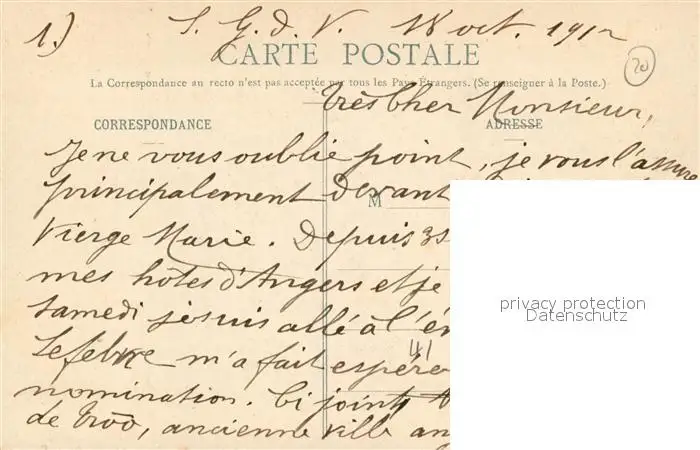 1.) S. G. d. V. 18 oct. 1912
20
CARTE POSTALE
La Correspondance au recto n'est pas acceptée par tous les Pays Étrangers. (Se renseigner à la Poste.)
Très Cher Monsieur,
CORRESPONDANCE
ADRESSE
Je ne vous oublie point, je vous l'assure
principalement devant
M
Vierge Marie. Depuis
mes hôtes d'Angers et je
samedi je suis allé à l'é
Lefebvre m'a fait espére
41
nomination. Ci joint
de Trôo, ancienne ville an
privacy protection
Datenschutz